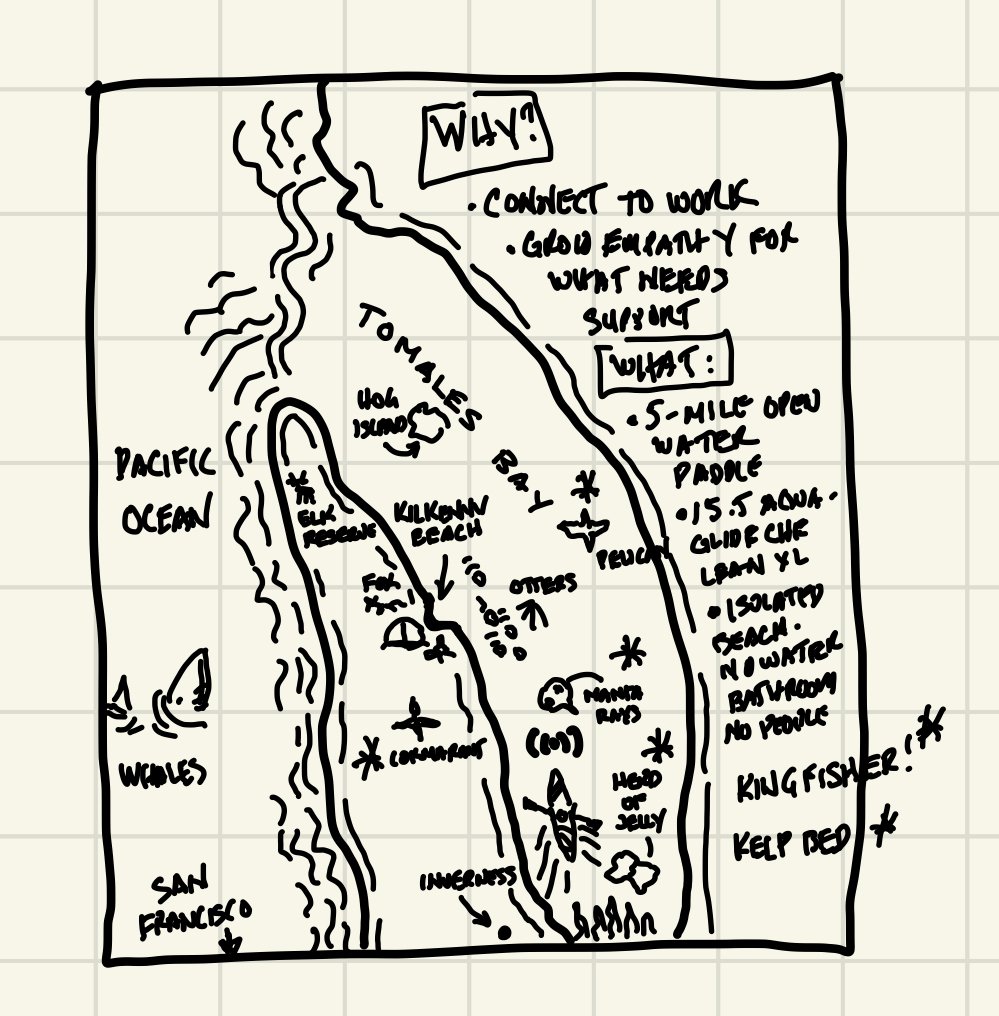 WHY?
• CONNECT TO WORK
• GROW EMPATHY FOR
WHAT NEEDS
SUPPORT
WHAT:
• 5-MILE OPEN
WATER
PADDLE
• 15.5 AQUA-
GLIDE CHE
LEAN XL
• ISOLATED
BEACH.
NO WATER
BATHROOM
NO PEOPLE
KINGFISHER!
KELP BED
TOMALES
BAY
HOG
ISLAND
PACIFIC
OCEAN
ELK
RESERVE
KILKENNY
BEACH
FOX
OTTERS
PELICAN
MANTA
RAYS
CORMARANT
HERD
OF
JELLY
WHALES
INVERNESS
SAN
FRANCISCO